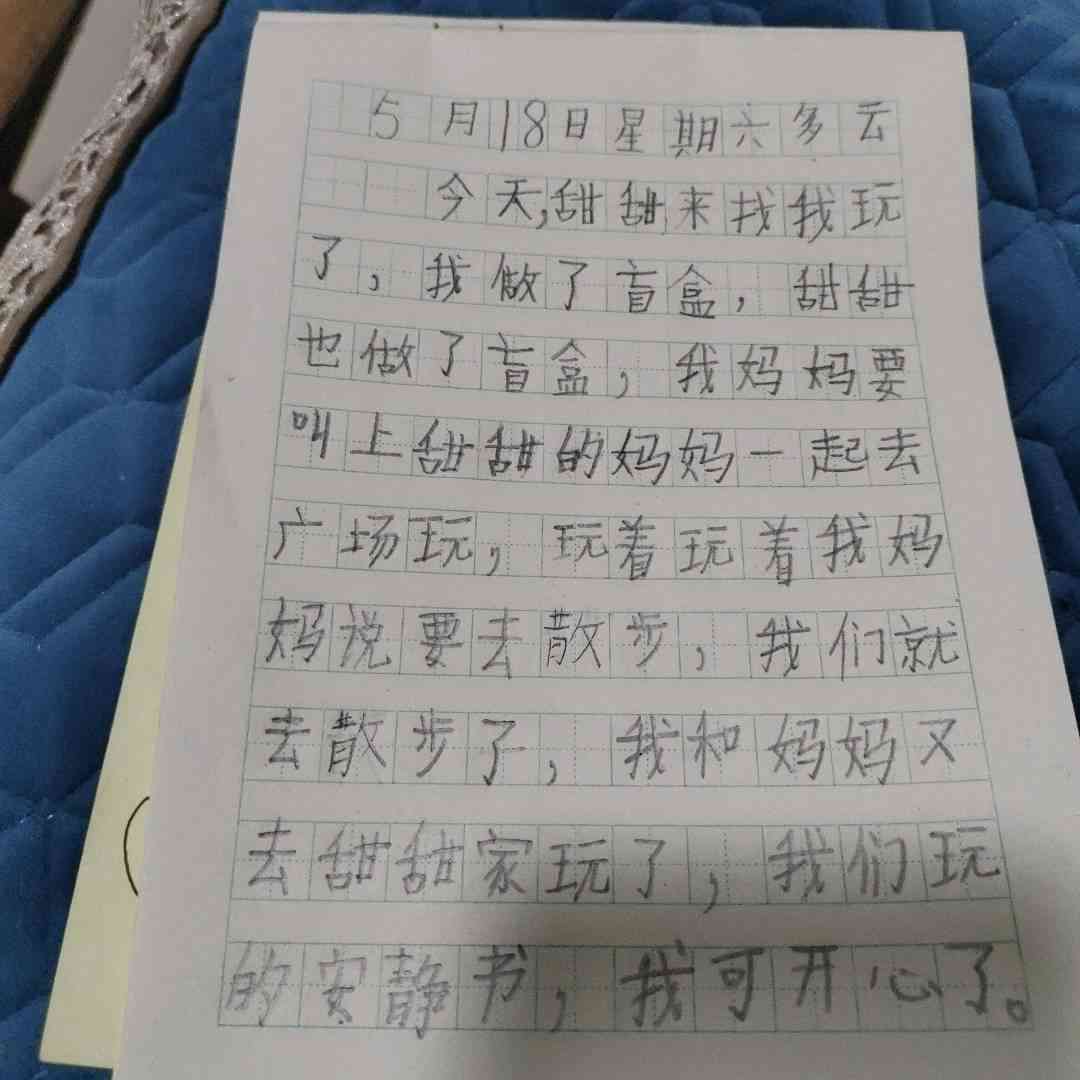 5月18日星期六多云
今天,甜甜来找我玩
了,我做了盲盒,甜甜
也做了盲盒,我妈妈要
叫上甜甜的妈妈一起去
广场玩,玩着玩着我妈
妈说要去散步,我们就
去散步了,我和妈妈又
去甜甜家玩了,我们玩
的安静书,我可开心了。